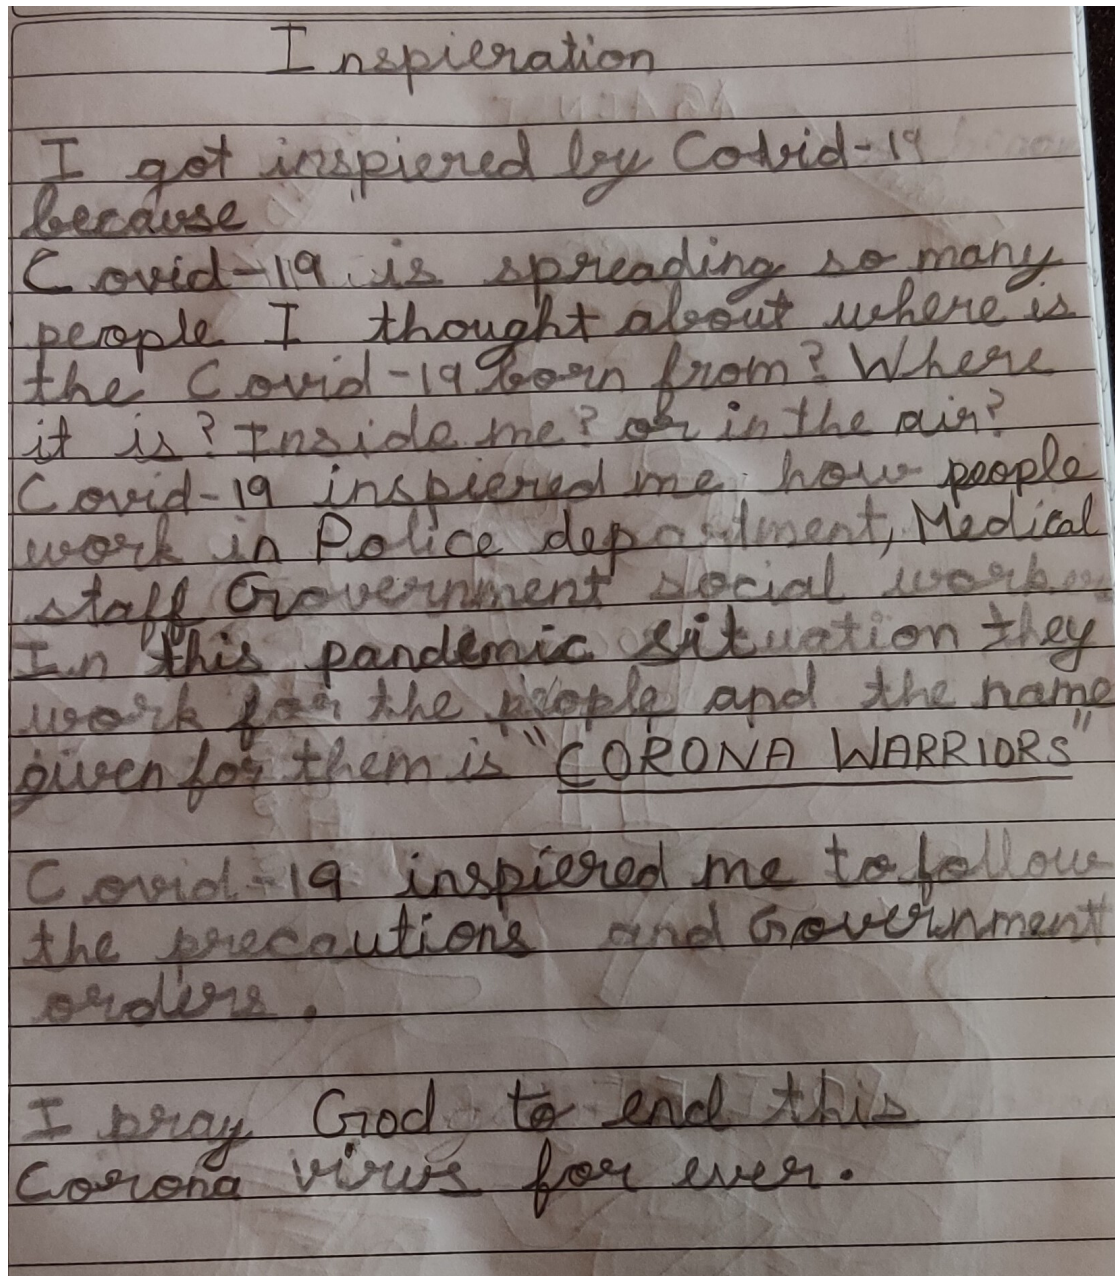 Inspieration
I got inspiered by Covid-19
because
Covid-19 is spreading so many
people I thought about where is
the Covid-19 born from? Where
it is? Inside me? or in the air?
Covid-19 inspiered me how people
work in Police department, Medical
staff Government social workers
In this pandemic situation they
work for the people and the name
given for them is "CORONA WARRIORS"
Covid-19 inspiered me to follow
the precautions and Government
orders.
I pray God to end this
Corona virus for ever.